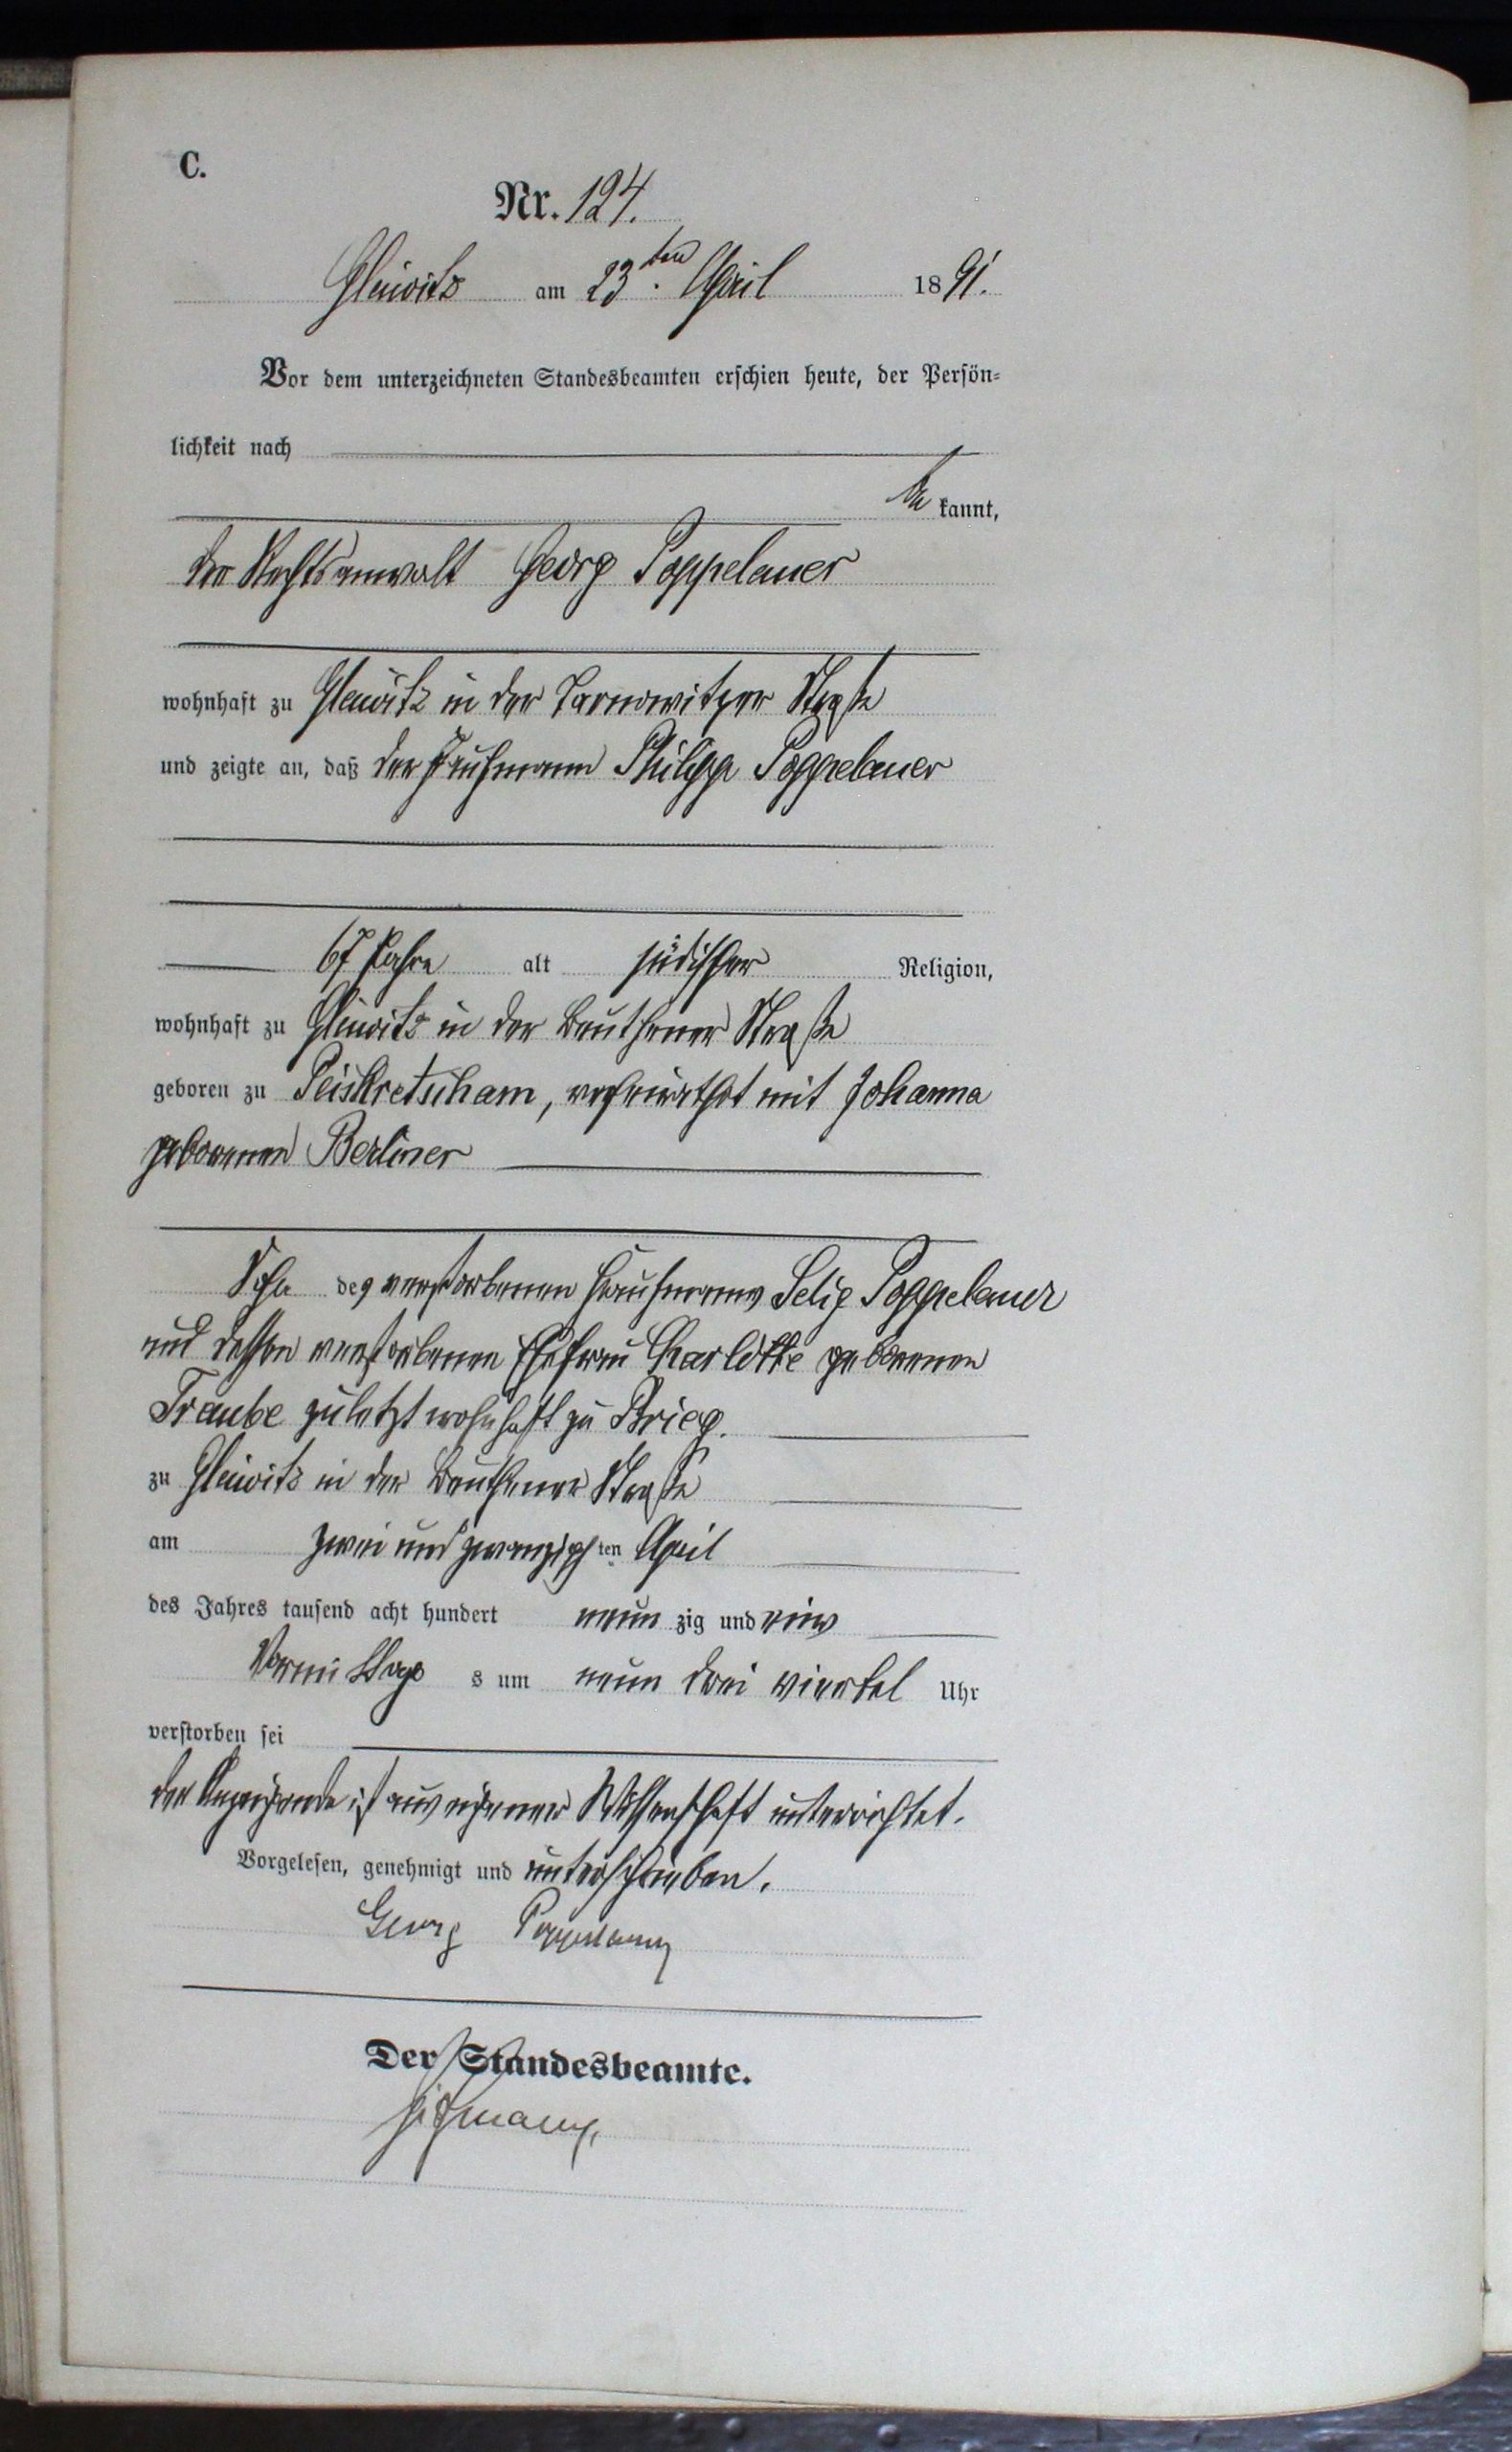 C.
Nr. 124.
Gleiwitz am 23ten April 1891.
Vor dem unterzeichneten Standesbeamten erschien heute, der Persön-
lichkeit nach
be kannt,
der Rechtsanwalt Georg Poppelauer
wohnhaft zu Gleiwitz in der Tarnowitzer Straße
und zeigte an, daß der Kaufmann Philipp Poppelauer
67 Jahre alt jüdischer Religion,
wohnhaft zu Gleiwitz in der Beuthener Straße
geboren zu Peiskretscham, verheirathet mit Johanna
geborenen Berliner
Sohn des verstorbenen Kaufmanns Selig Poppelauer
und dessen verstorbenen Ehefrau Charlotte geborenen
Traube zuletzt wohnhaft zu Brieg.
zu Gleiwitz in der Beuthener Straße
am zwei und zwanzigsten April
des Jahres tausend acht hundert neun zig und eins
Vormittags s um neun drei viertel Uhr
verstorben sei
der Anzeigende ist aus eigener Wissenschaft unterrichtet.
Vorgelesen, genehmigt und unterschrieben.
Georg Poppelauer
Der Standesbeamte.